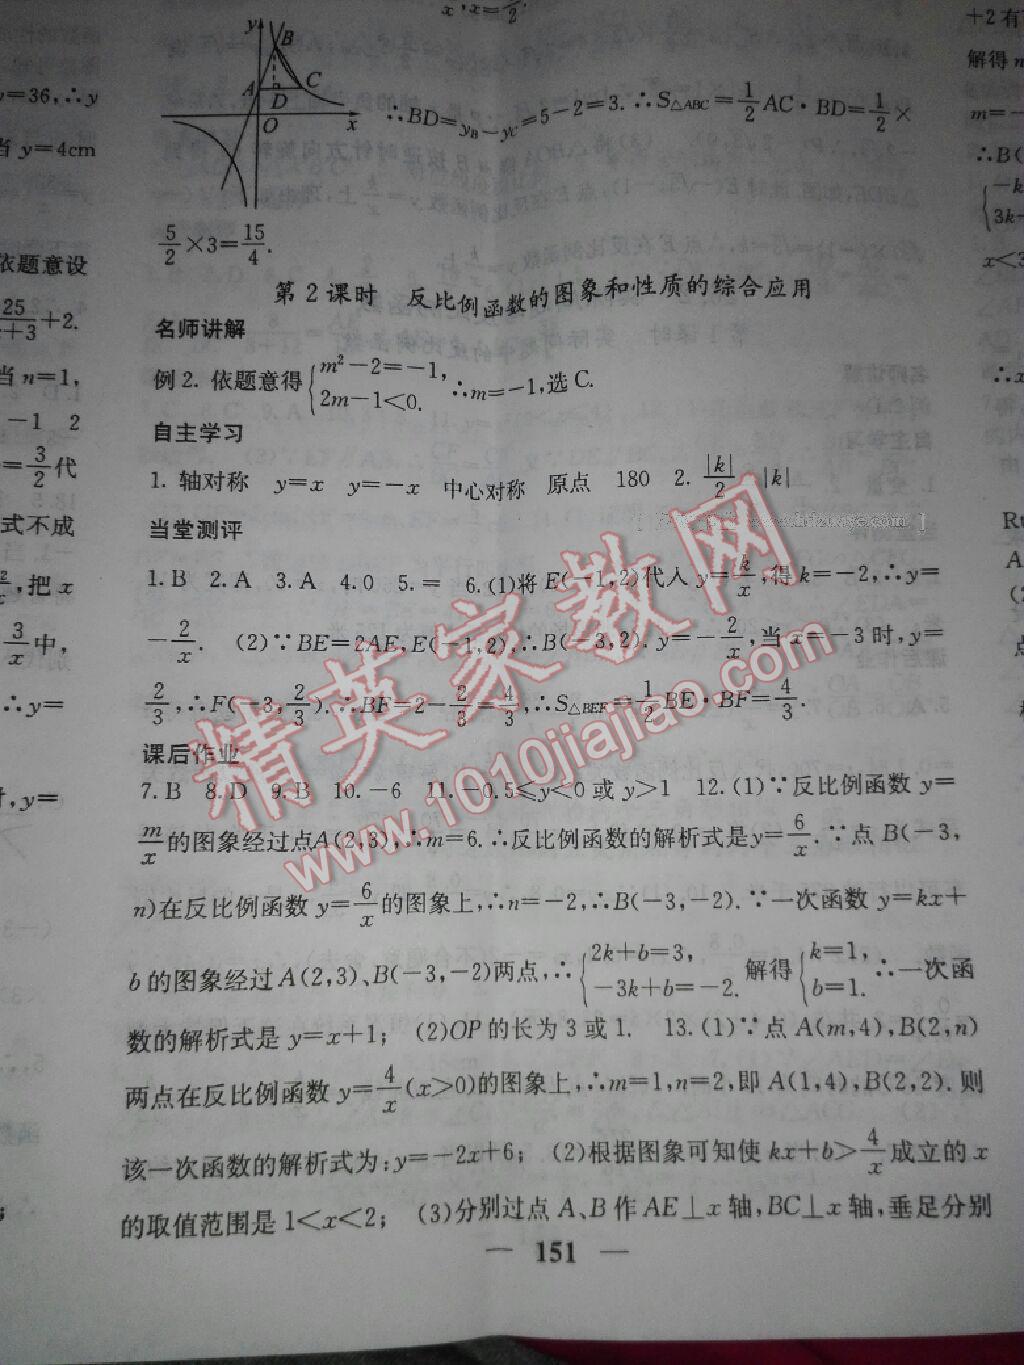 x, x = 2
y
B
A
C
D
O
x
∴BD=y_B-y_C=5-2=3. ∴S△ABC=1/2 AC·BD=1/2×
5/2×3=15/4.
第2课时 反比例函数的图象和性质的综合应用
名师讲解
例2. 依题意得{m²-2=-1, 2m-1<0. ∴m=-1,选C.
自主学习
1. 轴对称 y=x y=-x 中心对称 原点 180 2. |k|/2 |k|
当堂测评
1.B 2.A 3.A 4.0 5.= 6.(1)将E(-1,2)代入y=k/x,得k=-2,∴y=
-2/x. (2)∵BE=2AE,E(-1,2),∴B(-3,2). y=-2/x,当x=-3时,y=
2/3,∴F(-3,2/3). ∴BF=2-2/3=4/3,∴S△BEF=1/2 BE·BF=4/3.
课后作业
7.B 8.D 9.B 10.-6 11.-0.5≤y<0或y>1 12.(1)∵反比例函数y=
m/x的图象经过点A(2,3),∴m=6.∴反比例函数的解析式是y=6/x.∵点B(-3,
n)在反比例函数y=6/x的图象上,∴n=-2,∴B(-3,-2).∵一次函数y=kx+
b的图象经过A(2,3)、B(-3,-2)两点,∴{2k+b=3, -3k+b=-2. 解得{k=1, b=1. ∴一次函
数的解析式是y=x+1; (2)OP的长为3或1. 13.(1)∵点A(m,4),B(2,n)
两点在反比例函数y=4/x(x>0)的图象上,∴m=1,n=2,即A(1,4),B(2,2).则
该一次函数的解析式为:y=-2x+6; (2)根据图象可知使kx+b>4/x成立的x
的取值范围是1<x<2; (3)分别过点A、B作AE⊥x轴,BC⊥x轴,垂足分别
— 151 —
精英家教网
www.1010jiajiao.com
y=36,∴y
当y=4cm
依题意设
+2.
当n=1,
-1 2
=3/2代
式不成
,把x
3/x中,
∴y=
,y=
+2有
解得n
m=-
∴B(
3k-
x<3
∴x
A